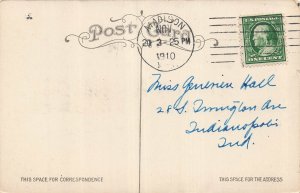 Post Card
MADISON
NOV
2 3-25 PM
1910
U.S. POSTAGE
ONE CENT
Miss Genevieve Hall
28 S. Irvington Ave
Indianapolis
Ind.
THIS SPACE FOR CORRESPONDENCE
THIS SPACE FOR THE ADDRESS